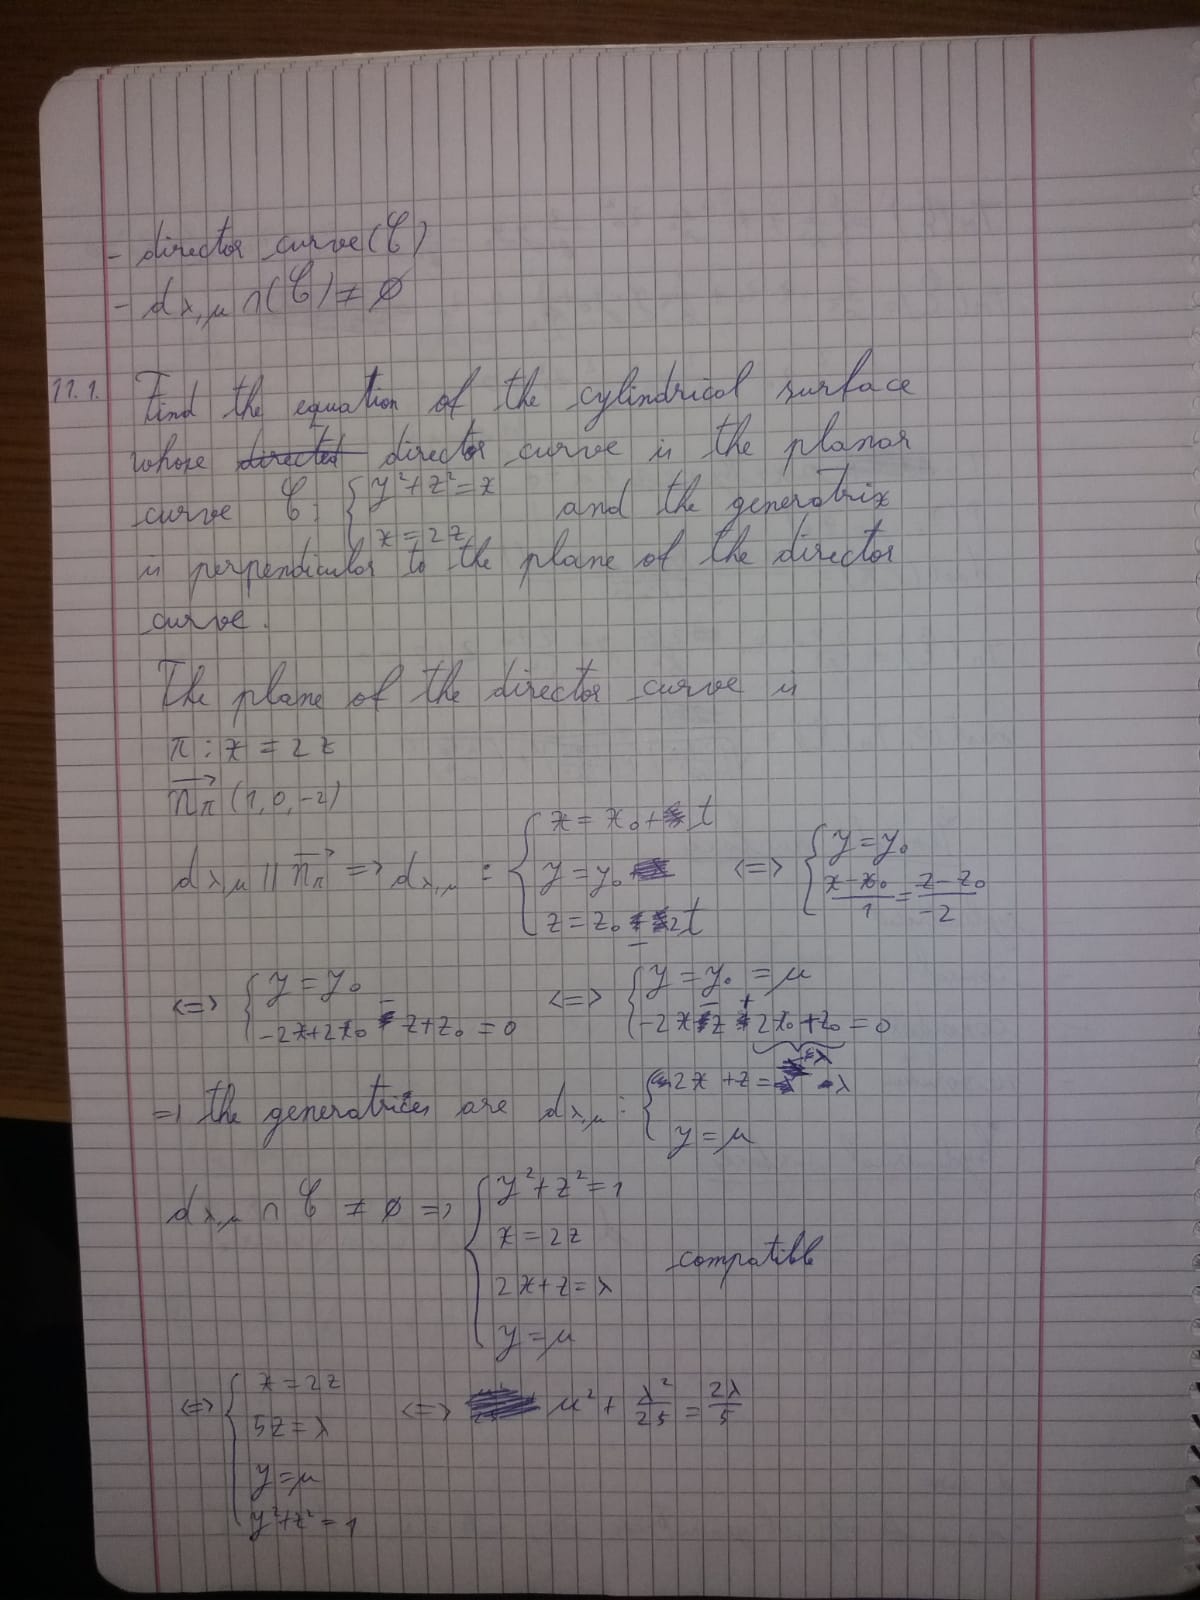 - director curve (C)
- d λ,μ ∩ (C) ≠ ∅
11.1. Find the equation of the cylindrical surface
whose director curve is the planar
curve C: { y² + z² = x
x = 2z and the generatrix
is perpendicular to the plane of the director
curve.
The plane of the director curve is
π : x = 2z
n⃗π (1, 0, -2)
dλ,μ || n⃗π => dλ,μ : { x = x₀ + t
y = y₀
z = z₀ - 2t <=> { y = y₀
(x - x₀)/1 = (z - z₀)/-2
<=> { y = y₀
-2x + 2x₀ - z + z₀ = 0 <=> { y = y₀ = μ
-2x - z + 2x₀ + z₀ = 0
= λ
=> the generatrices are dλ,μ : { 2x + z = λ
y = μ
dλ,μ ∩ C ≠ ∅ => { y² + z² = 1
x = 2z
2x + z = λ
y = μ compatible
<=> { x = 2z
5z = λ
y = μ
y² + z² = 1 <=> μ² + λ²/25 = 2λ/5